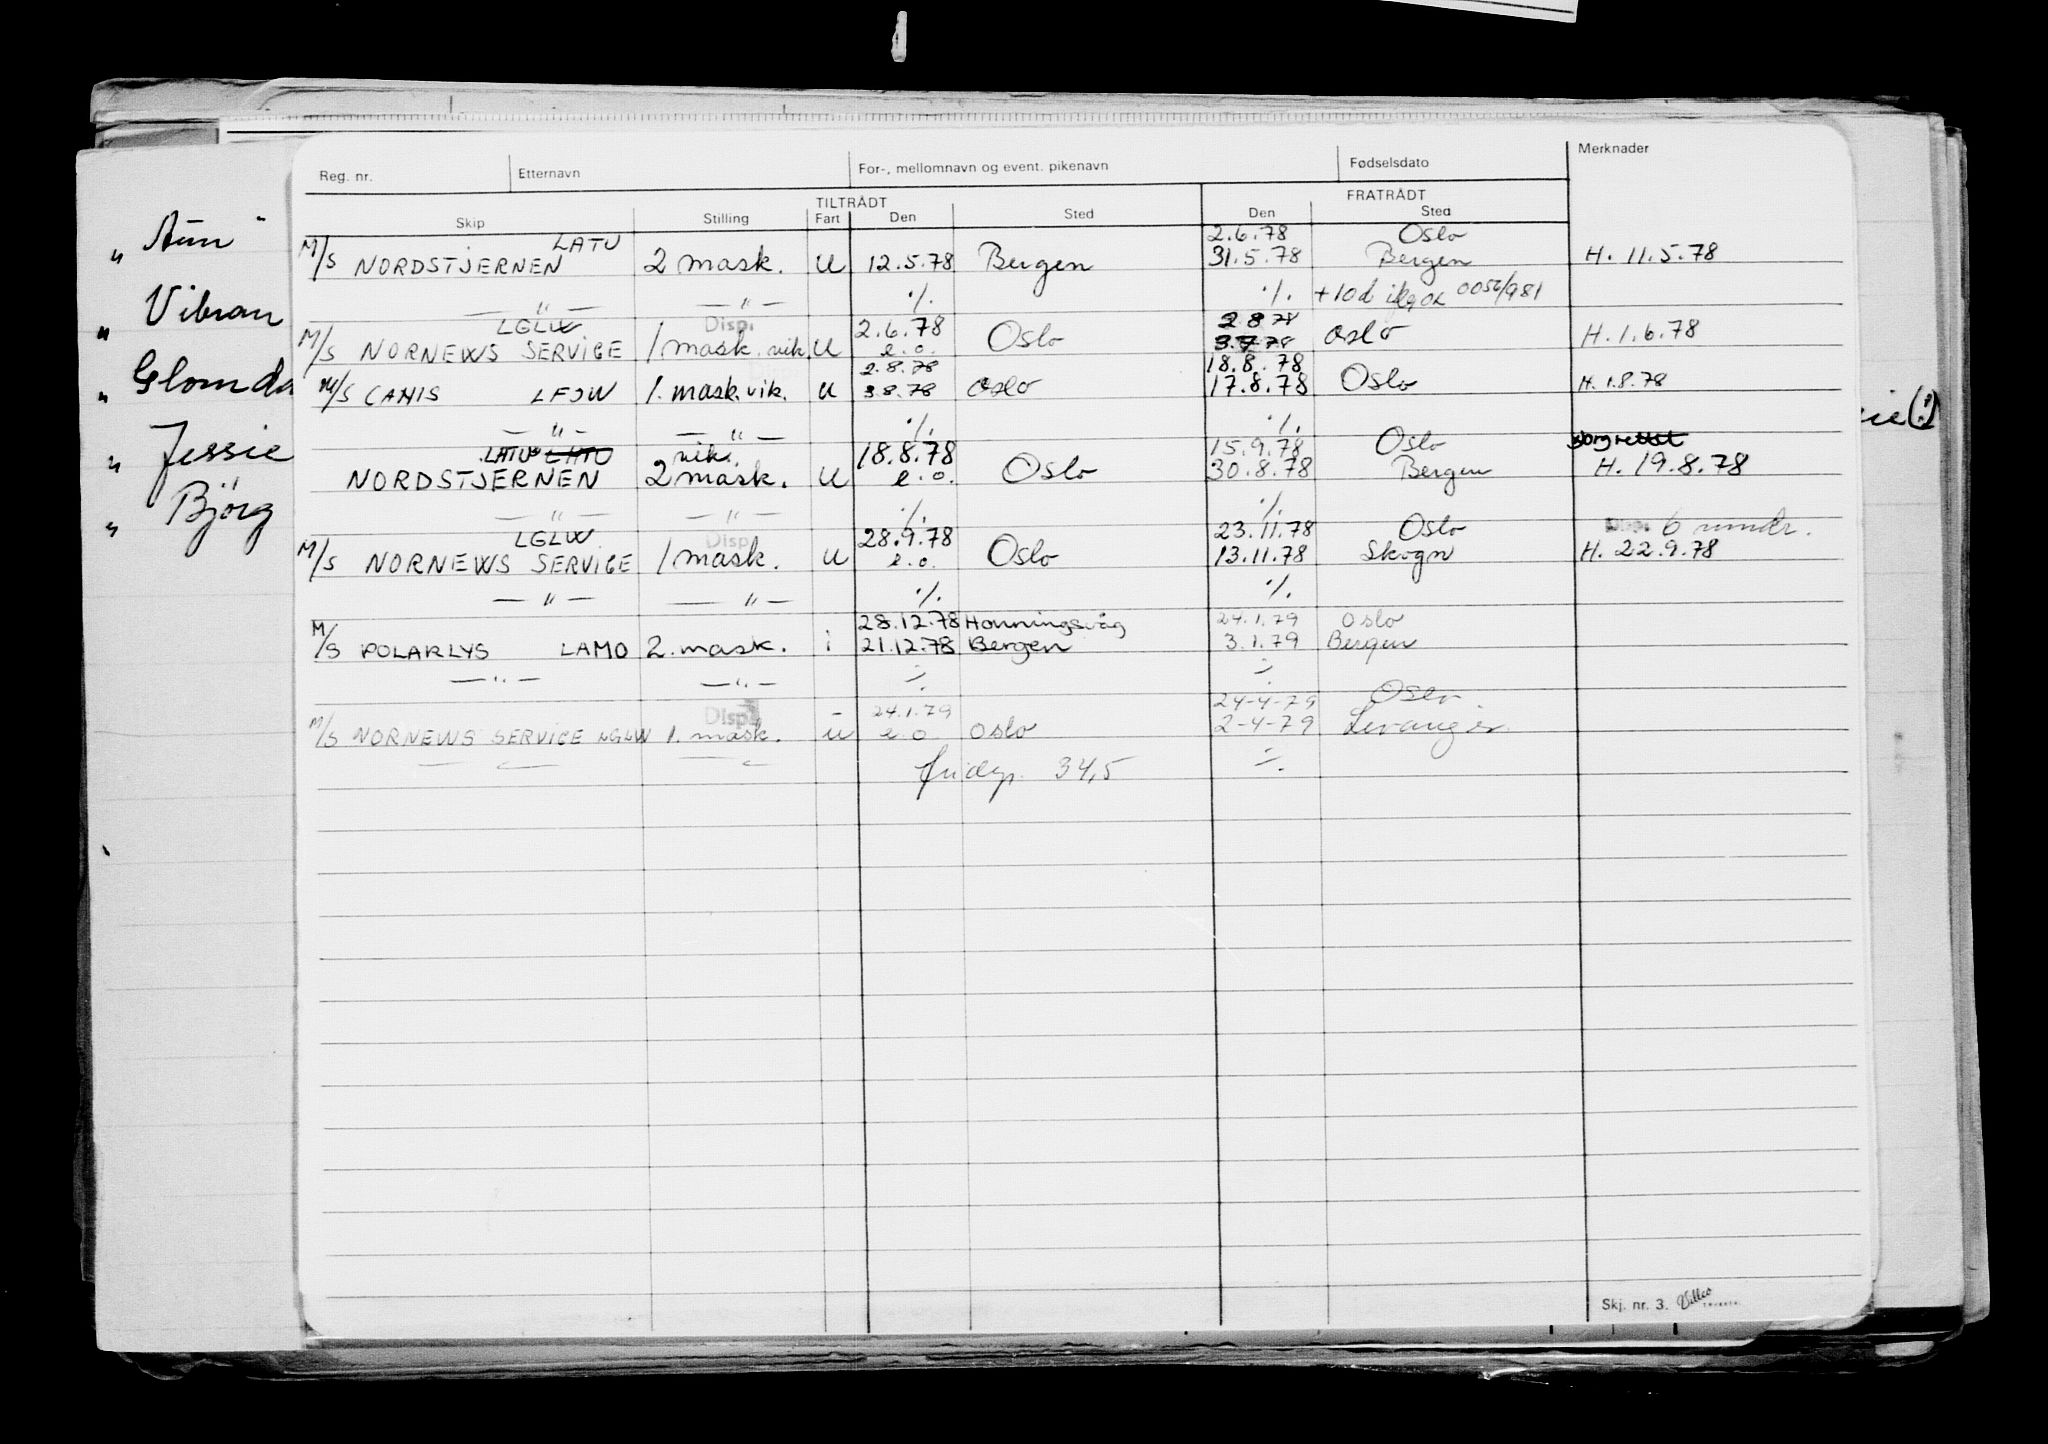 Reg. nr. Etternavn For-, mellomnavn og event. pikenavn Fødselsdato Merknader
TILTRÅDT FRATRÅDT
Skip Stilling Fart Den Sted Den Sted
LATU 2.6.78 Oslo
M/S NORDSTJERNEN 2 mask. U 12.5.78 Bergen 31.5.78 Bergen H. 11.5.78
— " — — " — ./. ./. +10d 0056/981
LGLW Disp. 2.6.78 2 8 78
M/S NORNEWS SERVICE 1 mask. vik U e.o. Oslo 3.7 78 oslo H. 1.6.78
2.8.78 18.8.78
M/S CANIS LFJW 1. mask. vik. U 3.8.78 oslo 17.8.78 Oslo H. 1.8.78
— " — — " — ./. ./.
LATU LATU vik. 18.8.78 15.9.78 Oslo
NORDSTJERNEN 2 mask. U e.o. Oslo 30.8.78 Bergen H. 19.8.78
— " — — " — ./. ./.
LGLW Disp. 28.9.78 23.11.78 Oslo Disp. 6 mndr.
M/S NORNEWS SERVICE 1 mask. U e.o. Oslo 13.11.78 Skogn H. 22.9.78
— " — — " — ./. ./.
28.12.78 Honningsvåg 24.1.79 oslo
M/S POLARLYS LAMO 2. mask. i 21.12.78 Bergen 3.1.79 Bergen
— " — — " — ./. ./.
Disp. 24.1.79 24-4-79 Oslo.
M/S NORNEWS SERVICE LGLW 1. mask. u e.o. oslo 2-4-79 Levanger
fridgp. 34,5 ./.
Skj. nr. 3.
" Aun "
" Vibran
" Glomda
" Jessie
" Björg